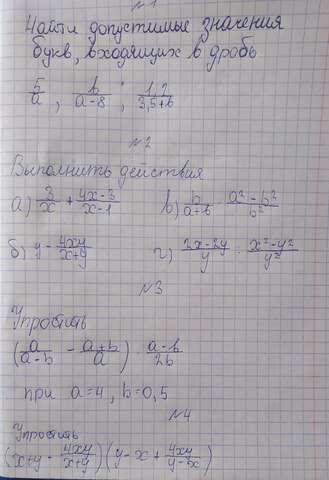 №1
Найти допустимые значения
букв, входящих в дробь
5/a, b/(a-8); 1,2/(3,5+b)
№2
Выполнить действия
а) 3/x + (4x-3)/(x-1) в) b/(a+b) · (a²-b²)/b²
б) y - 4xy/(x+y) г) (2x-2y)/y : (x²-y²)/y²
№3
Упростить
(a/(a-b) - (a+b)/a) · (a-b)/2b
при a=4, b=0,5
№4
Упростить
(x+y - 4xy/(x+y))(y-x + 4xy/(y-x))